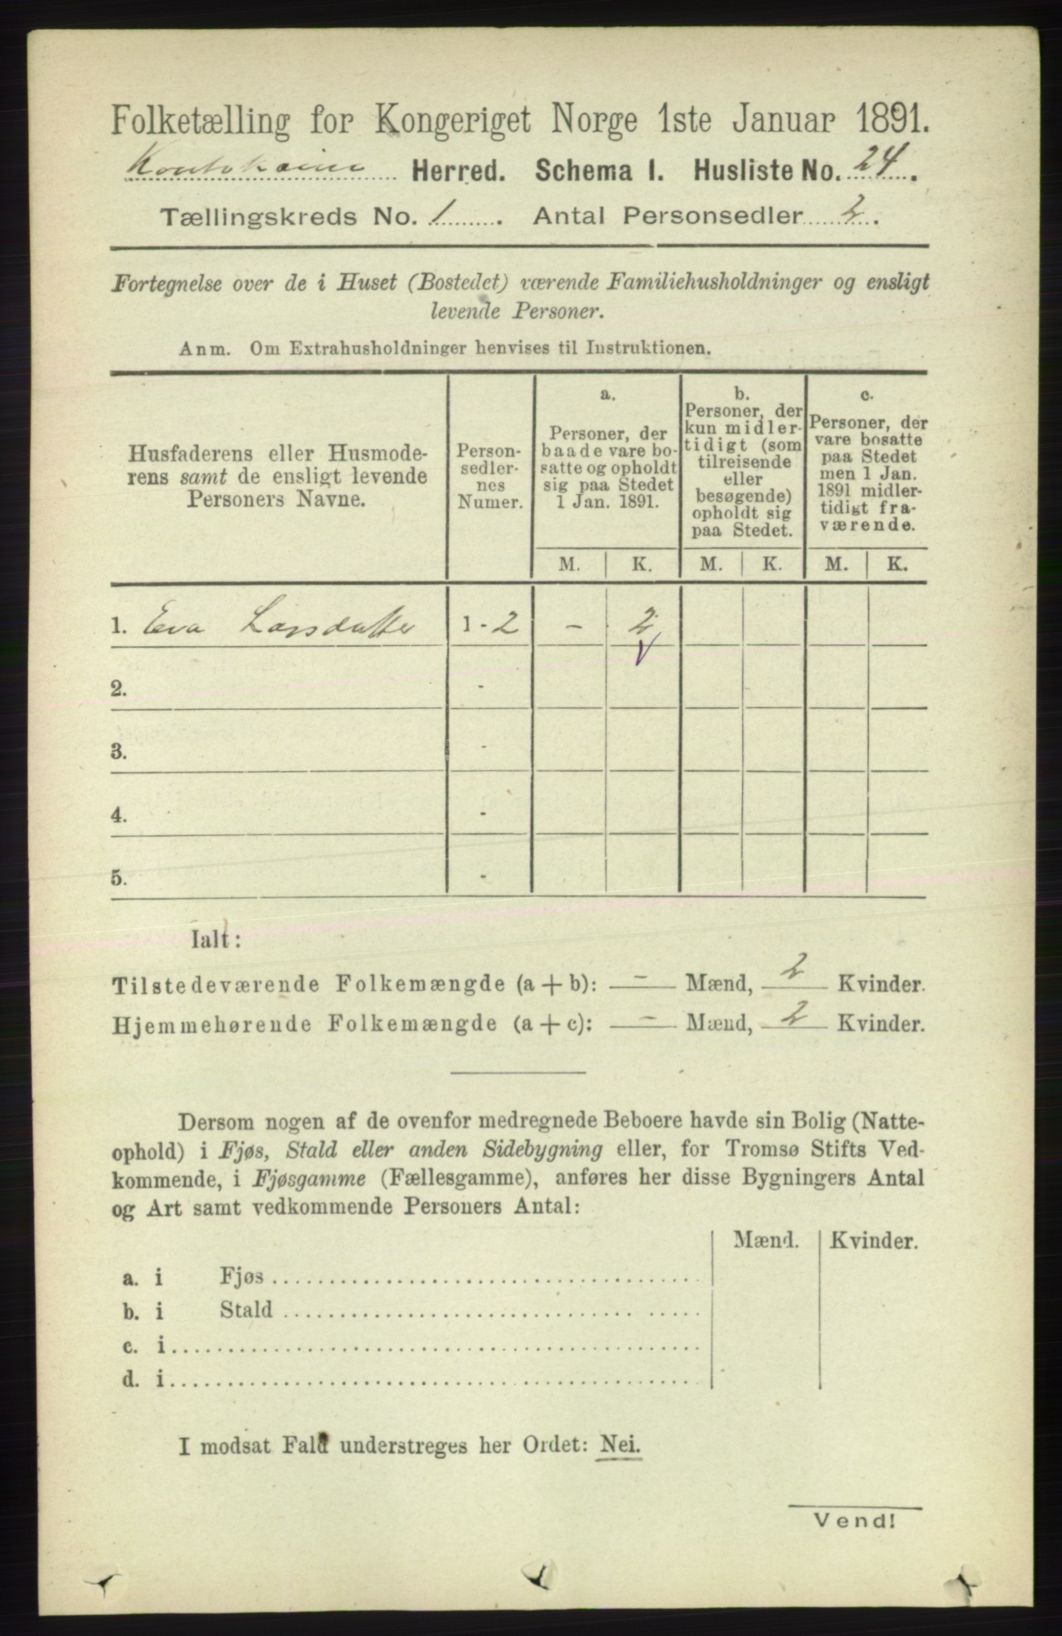 Folketælling for Kongeriget Norge 1ste Januar 1891.
Koutokeino Herred. Schema I. Husliste No. 24.
Tællingskreds No. 1. Antal Personsedler 2.
Fortegnelse over de i Huset (Bostedet) værende Familiehusholdninger og ensligt
levende Personer.
Anm. Om Extrahusholdninger henvises til Instruktionen.
Husfaderens eller Husmode-
rens samt de ensligt levende
Personers Navne.
Person-
sedler-
nes
Numer.
a.
Personer, der
baade vare bo-
satte og opholdt
sig paa Stedet
1 Jan. 1891.
b.
Personer, der
kun midler-
tidigt (som
tilreisende
eller
besøgende)
opholdt sig
paa Stedet.
c.
Personer, der
vare bosatte
paa Stedet
men 1 Jan.
1891 midler-
tidigt fra-
værende.
M. K. M. K. M. K.
1. Eva Larsdatter 1 - 2 - 2
2. -
3. -
4. -
5. -
Ialt:
Tilstedeværende Folkemængde (a + b): - Mænd, 2 Kvinder.
Hjemmehørende Folkemængde (a + c): - Mænd, 2 Kvinder.
Dersom nogen af de ovenfor medregnede Beboere havde sin Bolig (Natte-
ophold) i Fjøs, Stald eller anden Sidebygning eller, for Tromsø Stifts Ved-
kommende, i Fjøsgamme (Fællesgamme), anføres her disse Bygningers Antal
og Art samt vedkommende Personers Antal:
Mænd. Kvinder.
a. i Fjøs
b. i Stald
c. i
d. i
I modsat Fald understreges her Ordet: Nei.
Vend!